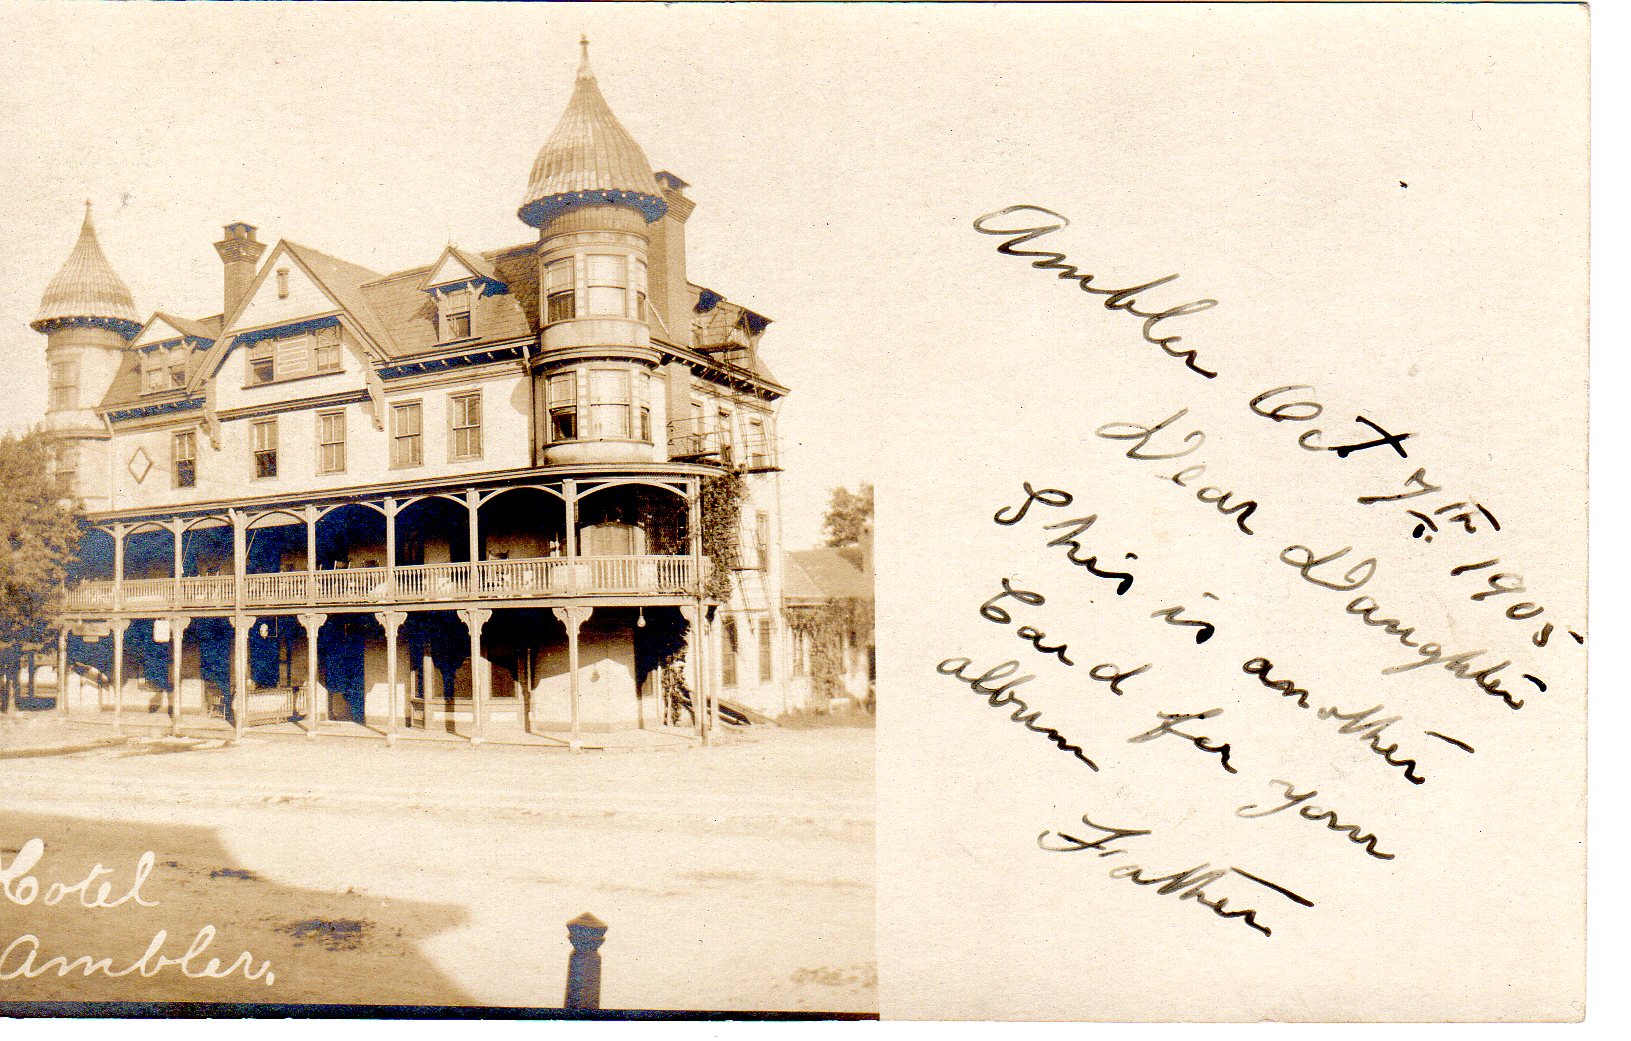 Hotel
Ambler.
Ambler Oct 7th 1905
Dear Daughter
This is another
Card for your
album
Father